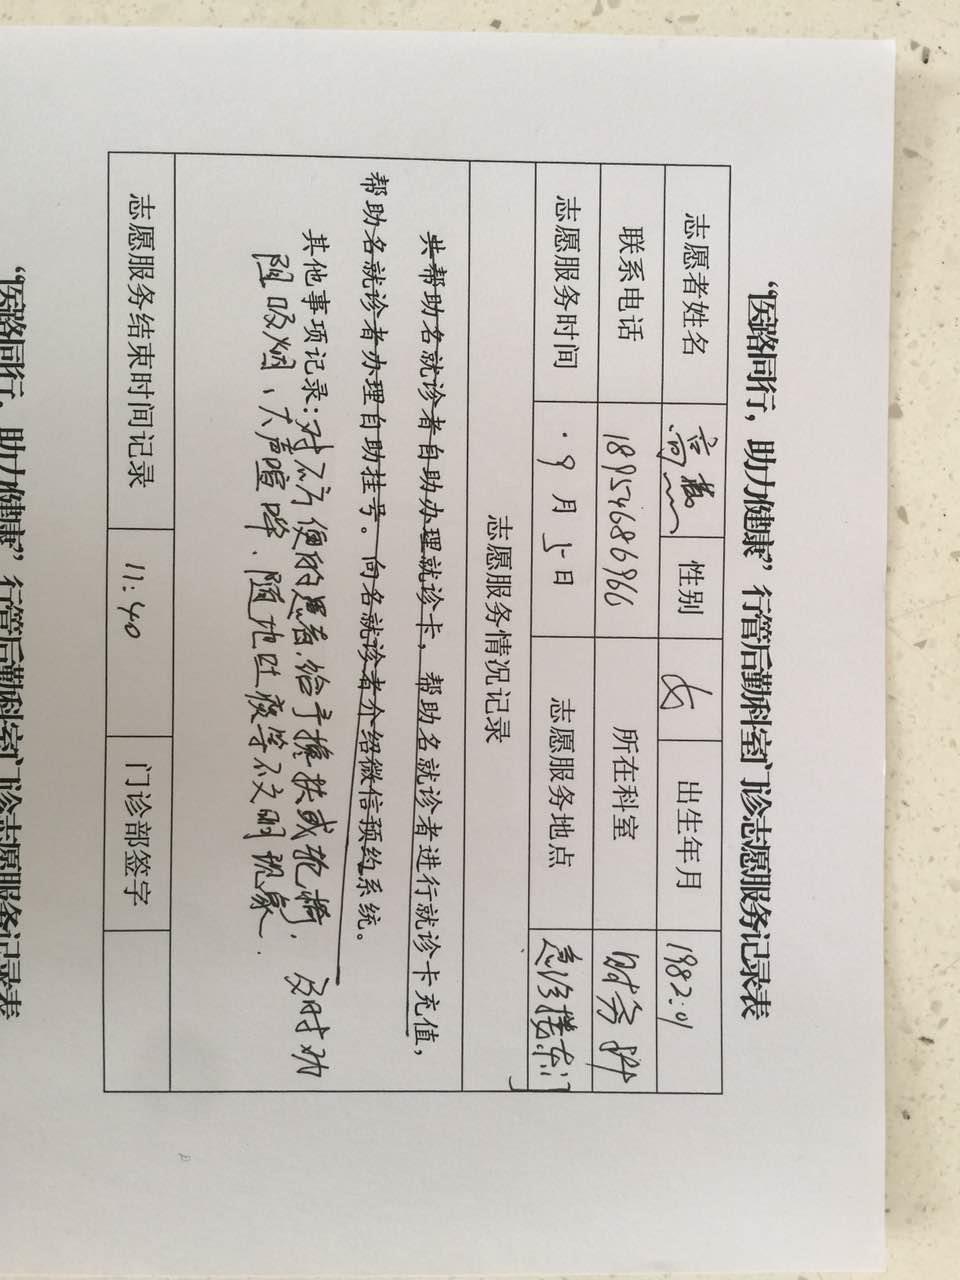 “医路同行，助力健康”行管后勤科室门诊志愿服务记录表
志愿者姓名 性别 女 出生年月 1982.01
联系电话 18954686966 所在科室 财务科
志愿服务时间 9月5日 志愿服务地点 急诊楼东门
志愿服务情况记录
共帮助名就诊者自助办理就诊卡，帮助名就诊者进行就诊卡充值，
帮助名就诊者办理自助挂号。向名就诊者介绍微信预约系统。
其他事项记录：对不方便的患者，给予搀扶或抬椅，及时劝
阻吸烟、大声喧哗、随地吐痰等不文明现象.
志愿服务结束时间记录 11:40 门诊部签字
“医路同行，助力健康”行管后勤科室门诊志愿服务记录表